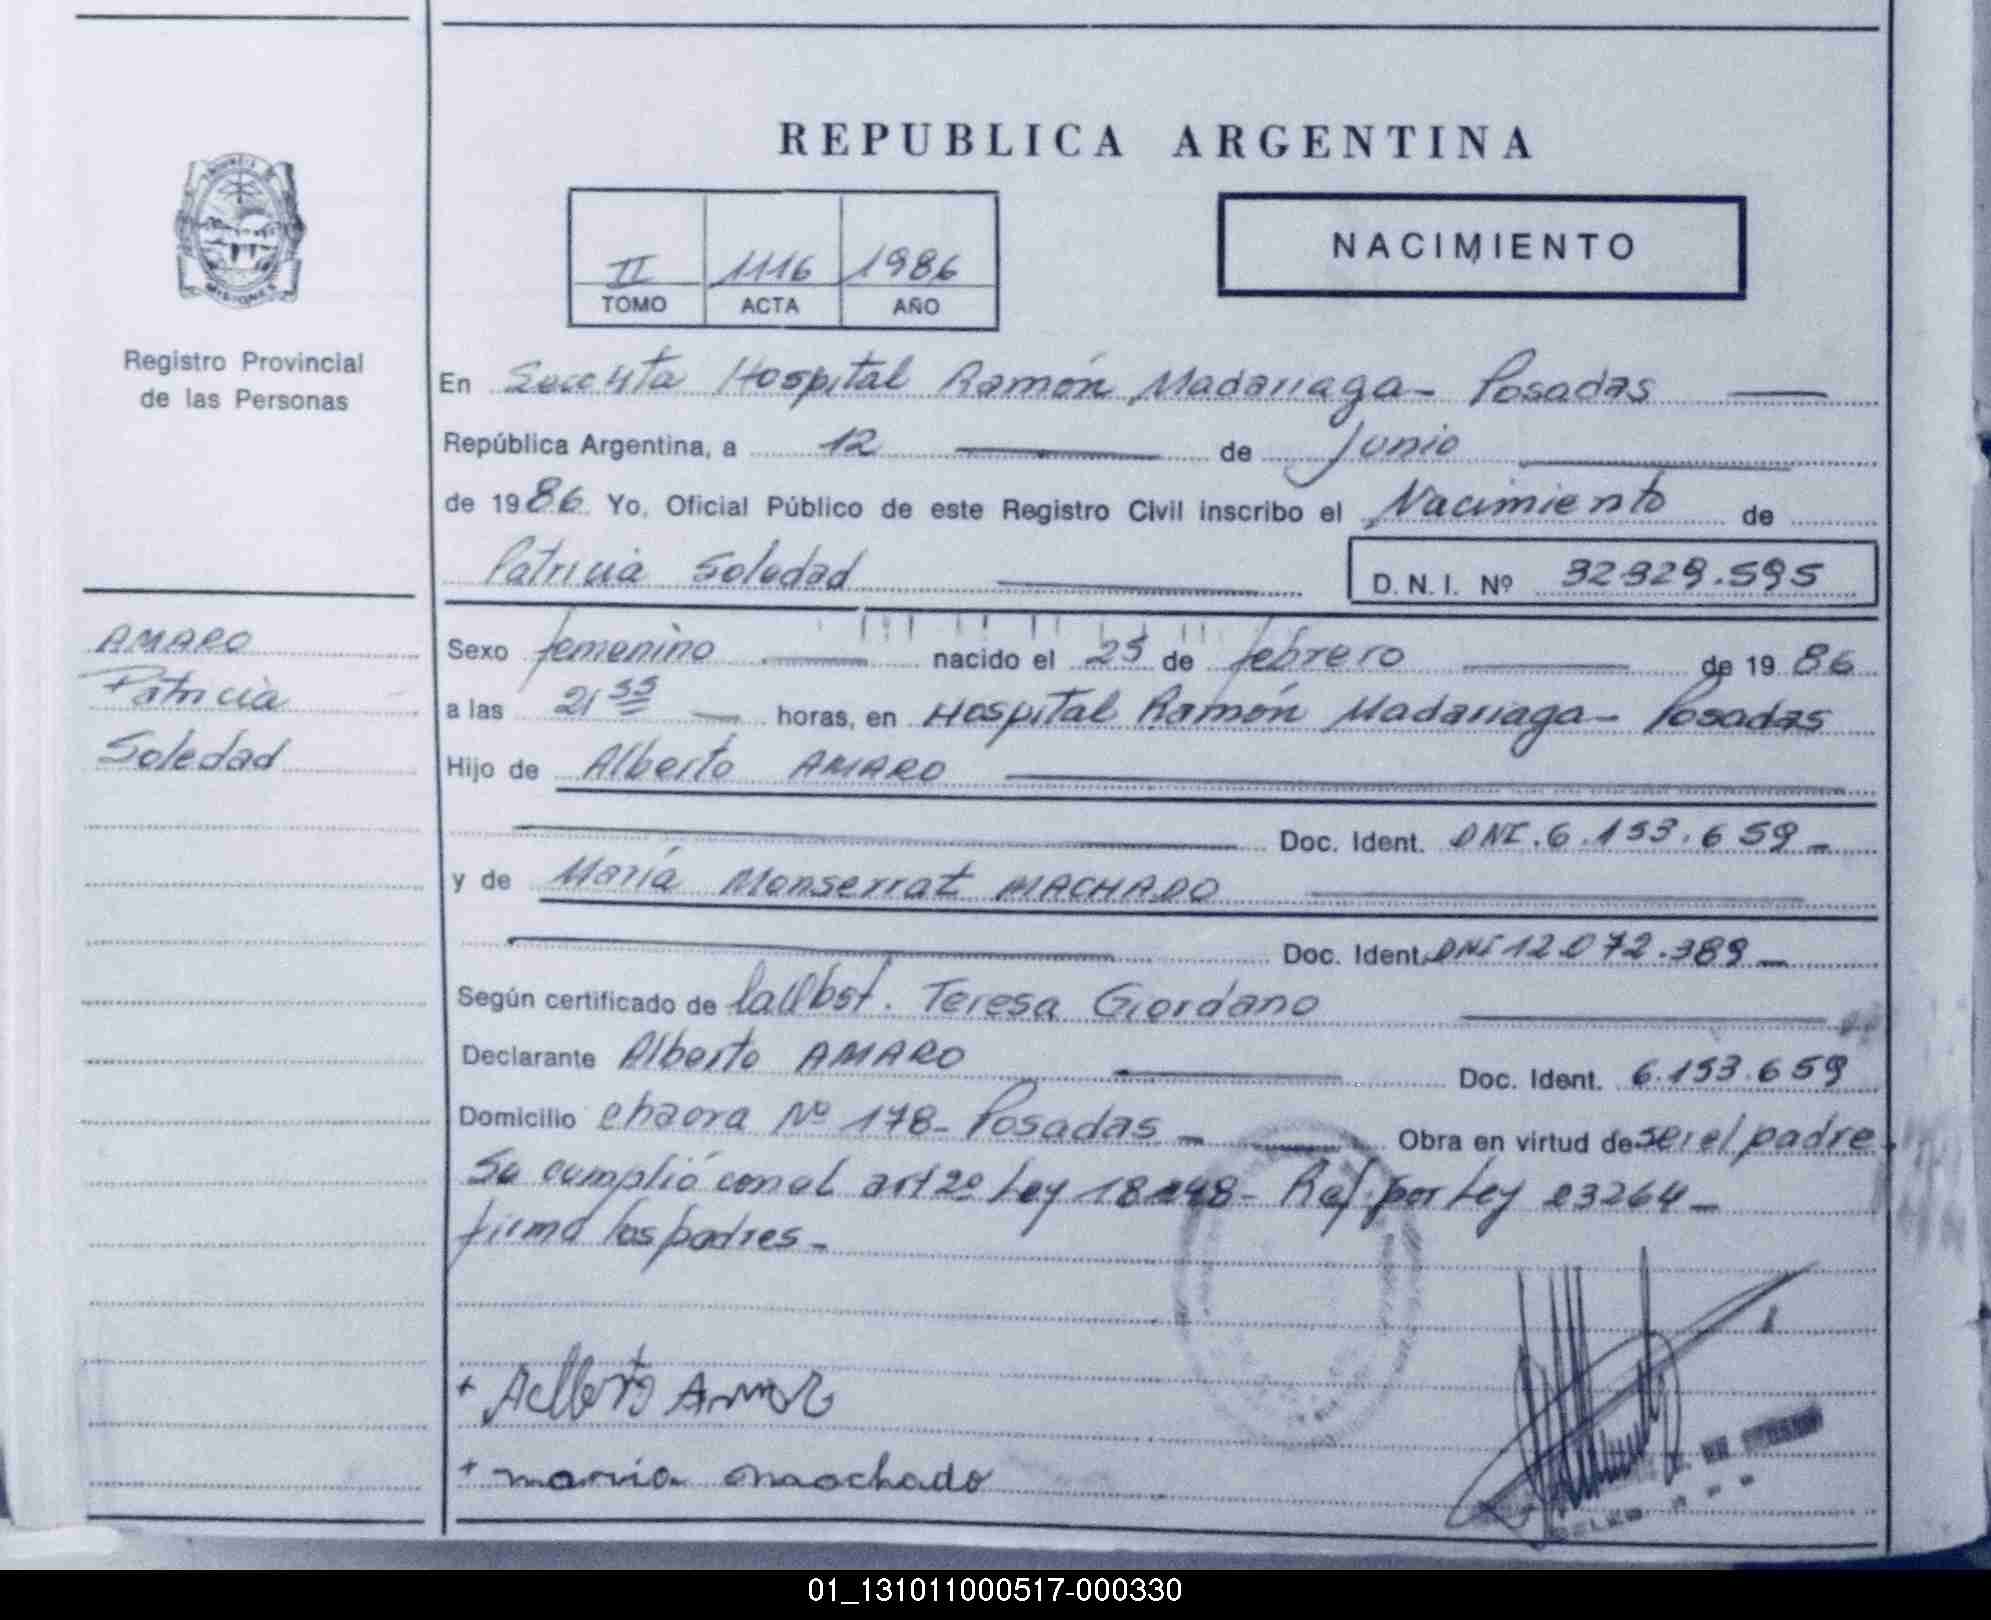 REPUBLICA ARGENTINA
PROVINCIA DE MISIONES
II 1116 1986
TOMO ACTA AÑO
NACIMIENTO
Registro Provincial
de las Personas
En Hospital Ramón Madariaga - Posadas
República Argentina, a 12 de Junio
de 1986 Yo, Oficial Público de este Registro Civil inscribo el Nacimiento de
Patricia Soledad D. N. I. Nº 32.329.595
AMARO
Patricia
Soledad
Sexo femenino nacido el 25 de febrero de 1986
a las 21 55 horas, en Hospital Ramón Madariaga - Posadas
Hijo de Alberto AMARO
Doc. Ident. DNI. 6.153.659 -
y de María Monserrat MACHADO
Doc. Ident. DNI 12.072.389 -
Según certificado de la Obst. Teresa Giordano
Declarante Alberto AMARO Doc. Ident. 6.153.659
Domicilio chacra Nº 178 - Posadas - Obra en virtud de ser el padre.
Se cumplió con el art 2º Ley 18248 - Ref. por Ley 23264 -
firma los padres -
+ Alberto Amaro
+ maria machado
01_131011000517-000330